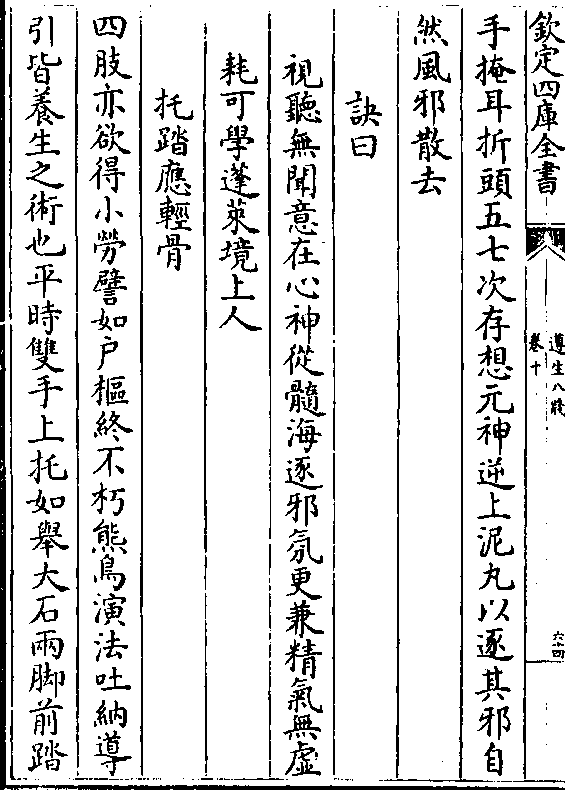 欽定四庫全書
遵生八牋
卷十
六十四
手掩耳折頭五七次存想元神逆上泥丸以逐其邪自
然風邪散去
訣曰
視聽無聞意在心神從髓海逐邪氛更兼精氣無虛
耗可學蓬萊境上人
托踏應輕骨
四肢亦欲得小勞譬如户樞終不朽熊鳥演法吐納導
引皆養生之術也平時雙手上托如舉大石兩脚前踏